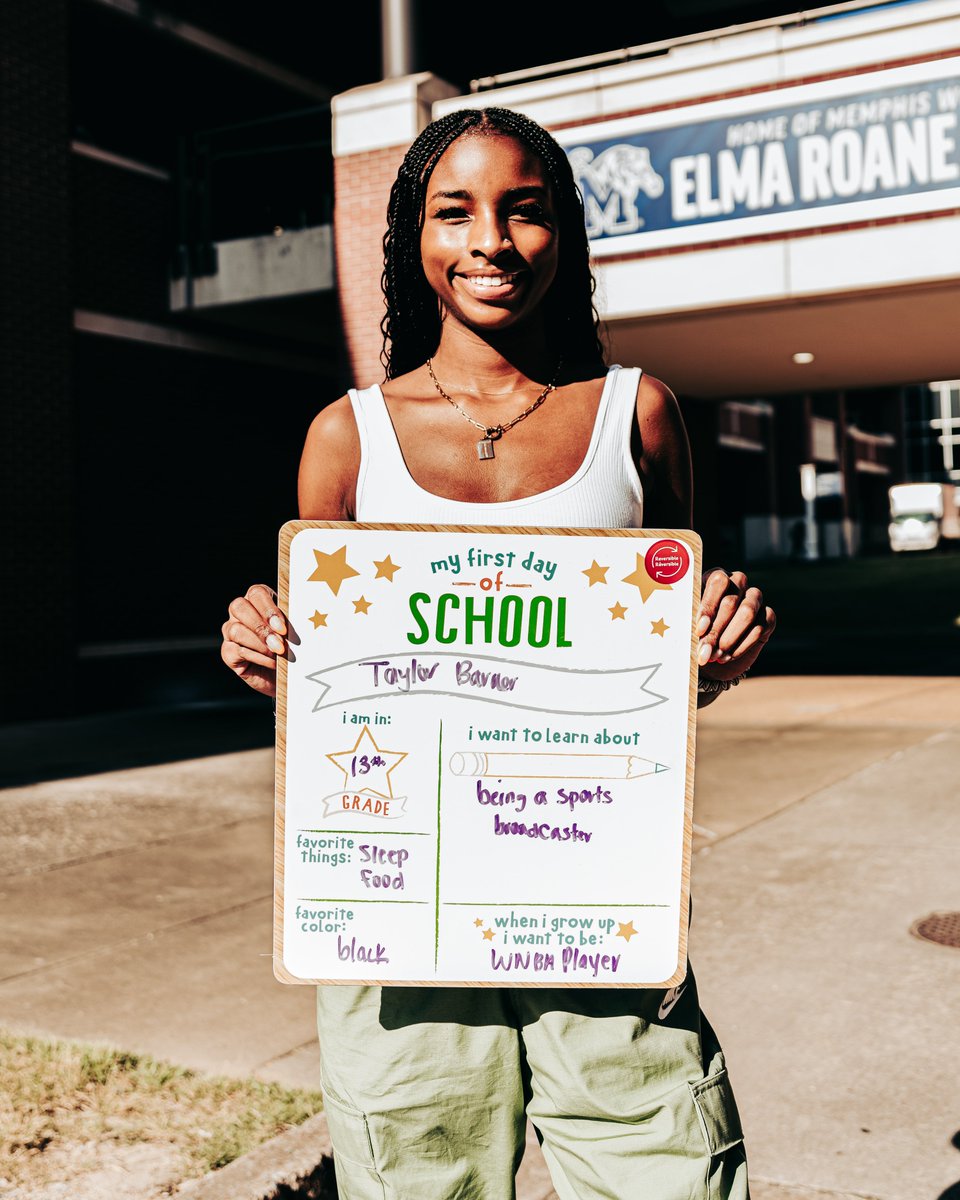 HOME OF MEMPHIS W
ELMA ROANE
M
my first day
of
SCHOOL
Reversible
Réversible
Taylor Barner
i am in:
13th
GRADE
i want to learn about
being a sports
broadcaster
favorite
things: Sleep
Food
favorite
color:
black
when i grow up
i want to be:
WNBA Player